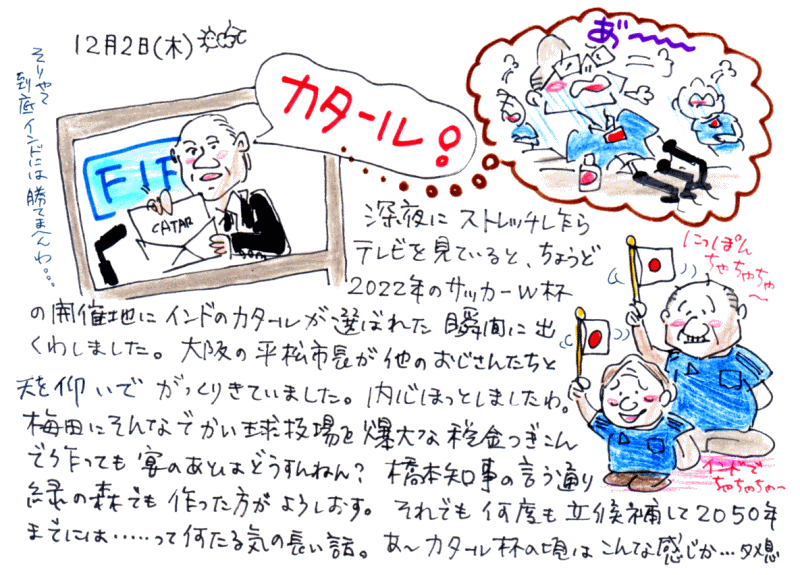 12月2日(木)
そりゃて
到底インドには勝てまへんわ。。。
カタール!
あ゛〜〜
FIF
CATAR
深夜に ストレッチし乍ら
テレビを見ていると、ちょうど
2022年のサッカーW杯
の開催地に インドのカタールが 選ばれた 瞬間に出
くわしました。大阪の平松市長が他のおじさんたちと
天を仰いで がっくりきていました。内心ほっとしましたわ。
梅田にそんなでかい球技場を爆大な税金つぎこん
で作っても宴のあとはどうすんねん? 橋本知事の言う通り
緑の森でも 作った方が よろしおす。それでも 何度も 立候補して2050年
までには……って何たる気の長い話。あ〜カタール杯の頃はこんな感じか…タメ息
にっぽん
ちゃちゃちゃ
〜
インドで
ちゃちゃちゃ〜